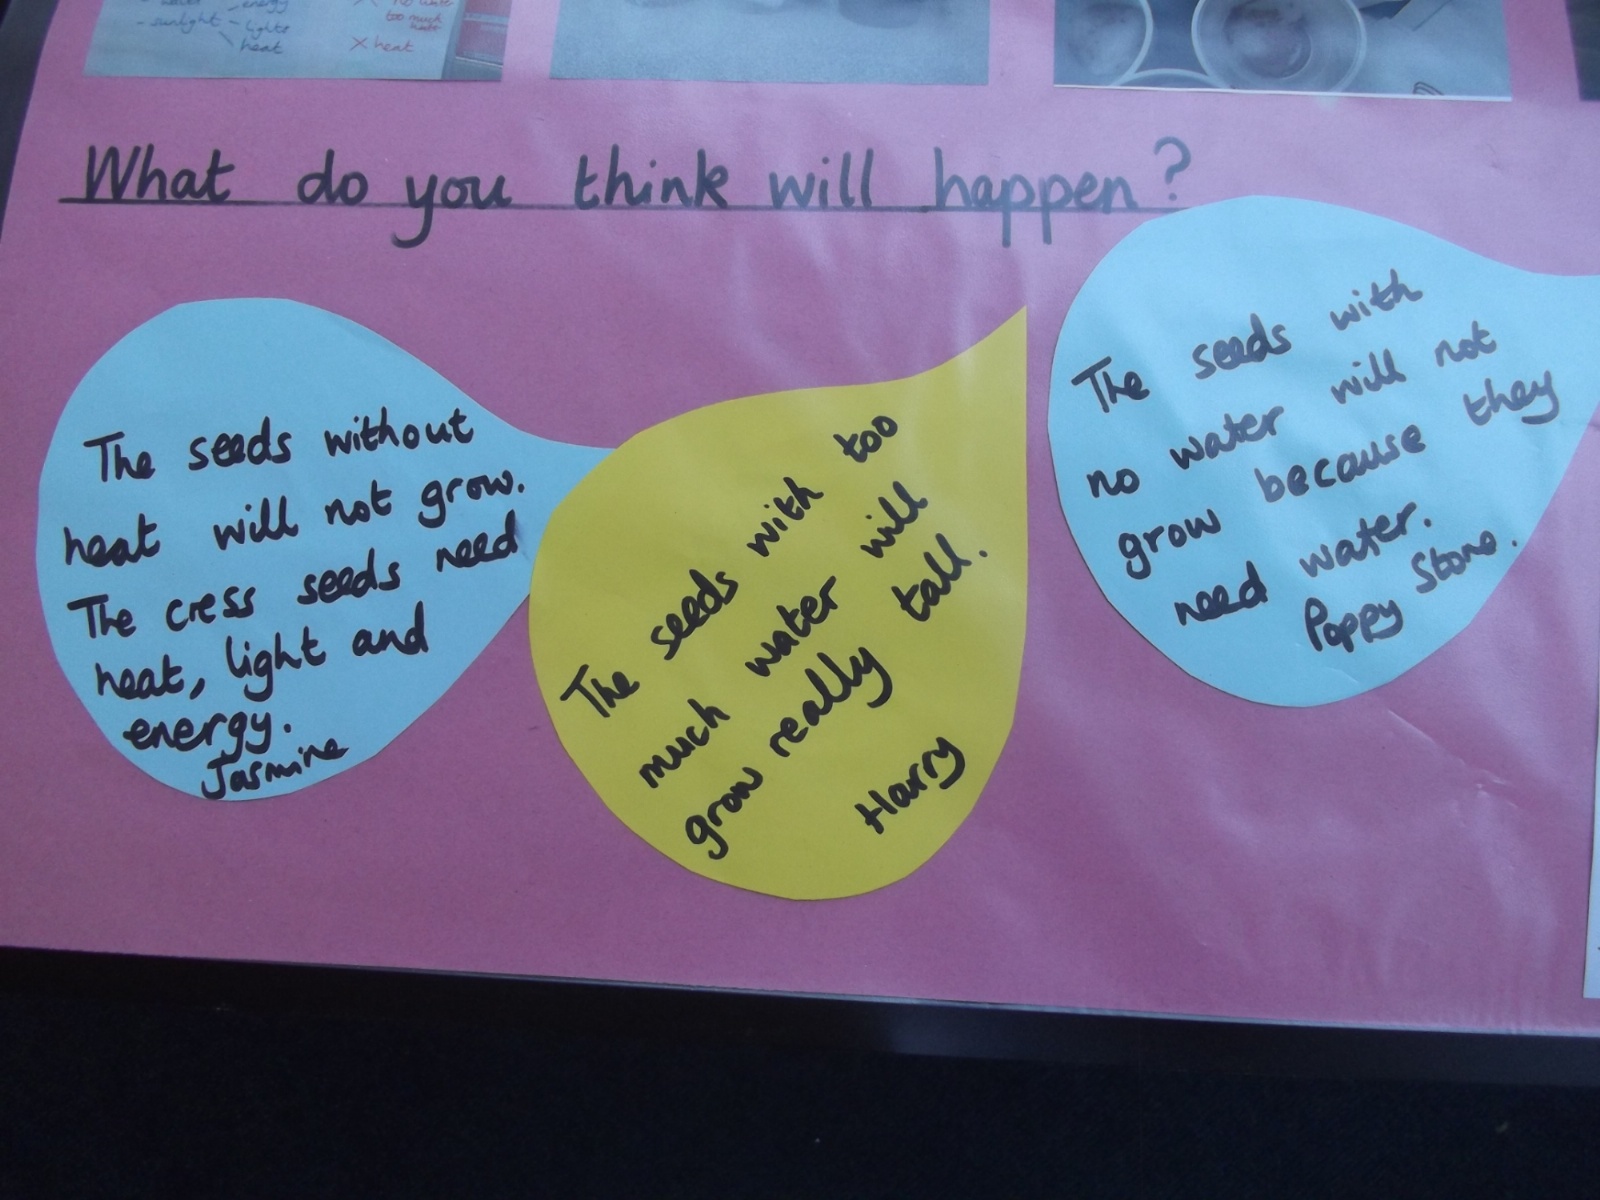 water - energy
- sunlight - lights
heat
too much
X heat
What do you think will happen?
The seeds without
heat will not grow.
The cress seeds need
heat, light and
energy.
Jasmine
The seeds with too
much water will
grow really tall.
Harry
The seeds with
no water will not
grow because they
need water.
Poppy Stone.